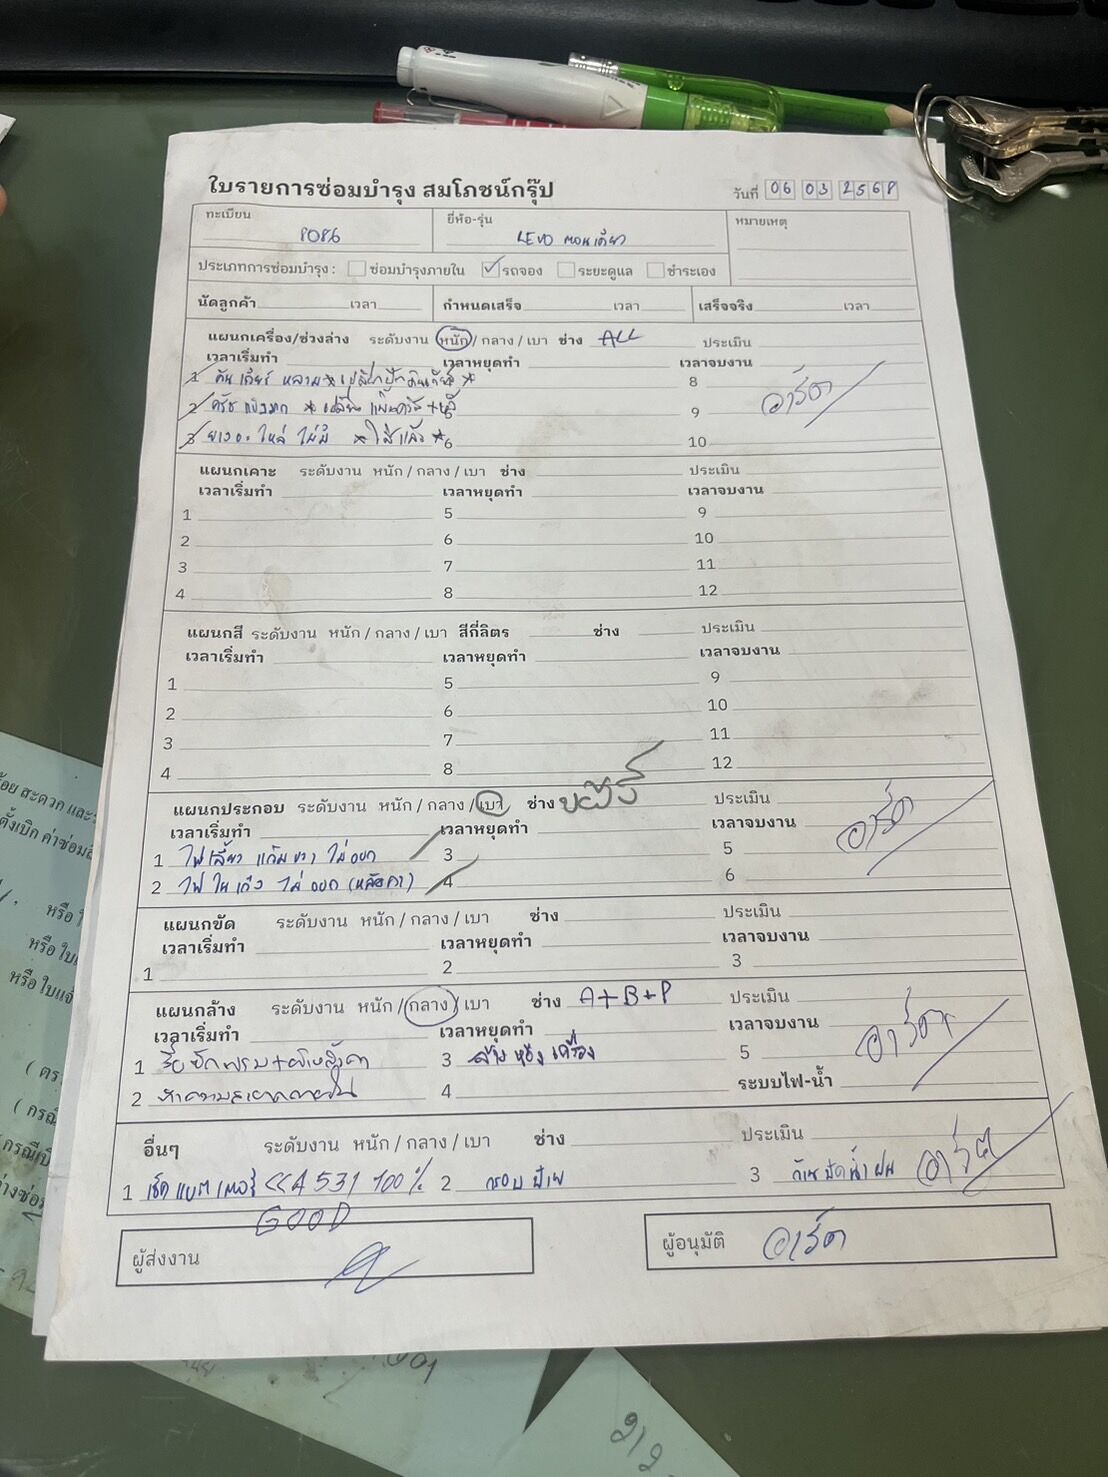 ใบรายการซ่อมบำรุง สมโภชน์กรุ๊ป
วันที่ 06 03 2568
ทะเบียน 8086 ยี่ห้อ-รุ่น REVO ตอนเดียว หมายเหตุ
ประเภทการซ่อมบำรุง : ซ่อมบำรุงภายใน รถจอง ระยะดูแล ชำระเอง
นัดลูกค้า เวลา กำหนดเสร็จ เวลา เสร็จจริง เวลา
แผนกเครื่อง/ช่วงล่าง ระดับงาน หนัก / กลาง / เบา ช่าง ALL ประเมิน
เวลาเริ่มทำ เวลาหยุดทำ เวลาจบงาน
1 คันเกียร์ หลวม 8 อาร์ต
2 ครัช 9
3 ยางอะไหล่ ไม่มี *ใส่แล้ว* 6 10
แผนกเคาะ ระดับงาน หนัก / กลาง / เบา ช่าง ประเมิน
เวลาเริ่มทำ เวลาหยุดทำ เวลาจบงาน
1 5 9
2 6 10
3 7 11
4 8 12
แผนกสี ระดับงาน หนัก / กลาง / เบา สีกี่ลิตร ช่าง ประเมิน
เวลาเริ่มทำ เวลาหยุดทำ เวลาจบงาน
1 5 9
2 6 10
3 7 11
4 8 12
แผนกประกอบ ระดับงาน หนัก / กลาง / เบา ช่าง ประเมิน
เวลาเริ่มทำ เวลาหยุดทำ เวลาจบงาน อาร์ต
1 ไฟเลี้ยว แก้มขวา ไม่ออก 3 5
2 ไฟในเก๋ง ไม่ออก (หลังคา) 4 6
แผนกขัด ระดับงาน หนัก / กลาง / เบา ช่าง ประเมิน
เวลาเริ่มทำ เวลาหยุดทำ เวลาจบงาน
1 2 3
แผนกล้าง ระดับงาน หนัก / กลาง / เบา ช่าง A+B+P ประเมิน
เวลาเริ่มทำ เวลาหยุดทำ เวลาจบงาน อาร์ต
1 3 ล้างห้องเครื่อง 5
2 ทำความสะอาดภายใน 4 ระบบไฟ-น้ำ
อื่นๆ ระดับงาน หนัก / กลาง / เบา ช่าง ประเมิน
1 เช็คแบตเตอรี่ CCA 531 100% 2 กรอบป้าย 3 ก้านปัดน้ำฝน อาร์ต
GOOD
ผู้ส่งงาน ผู้อนุมัติ อาร์ต